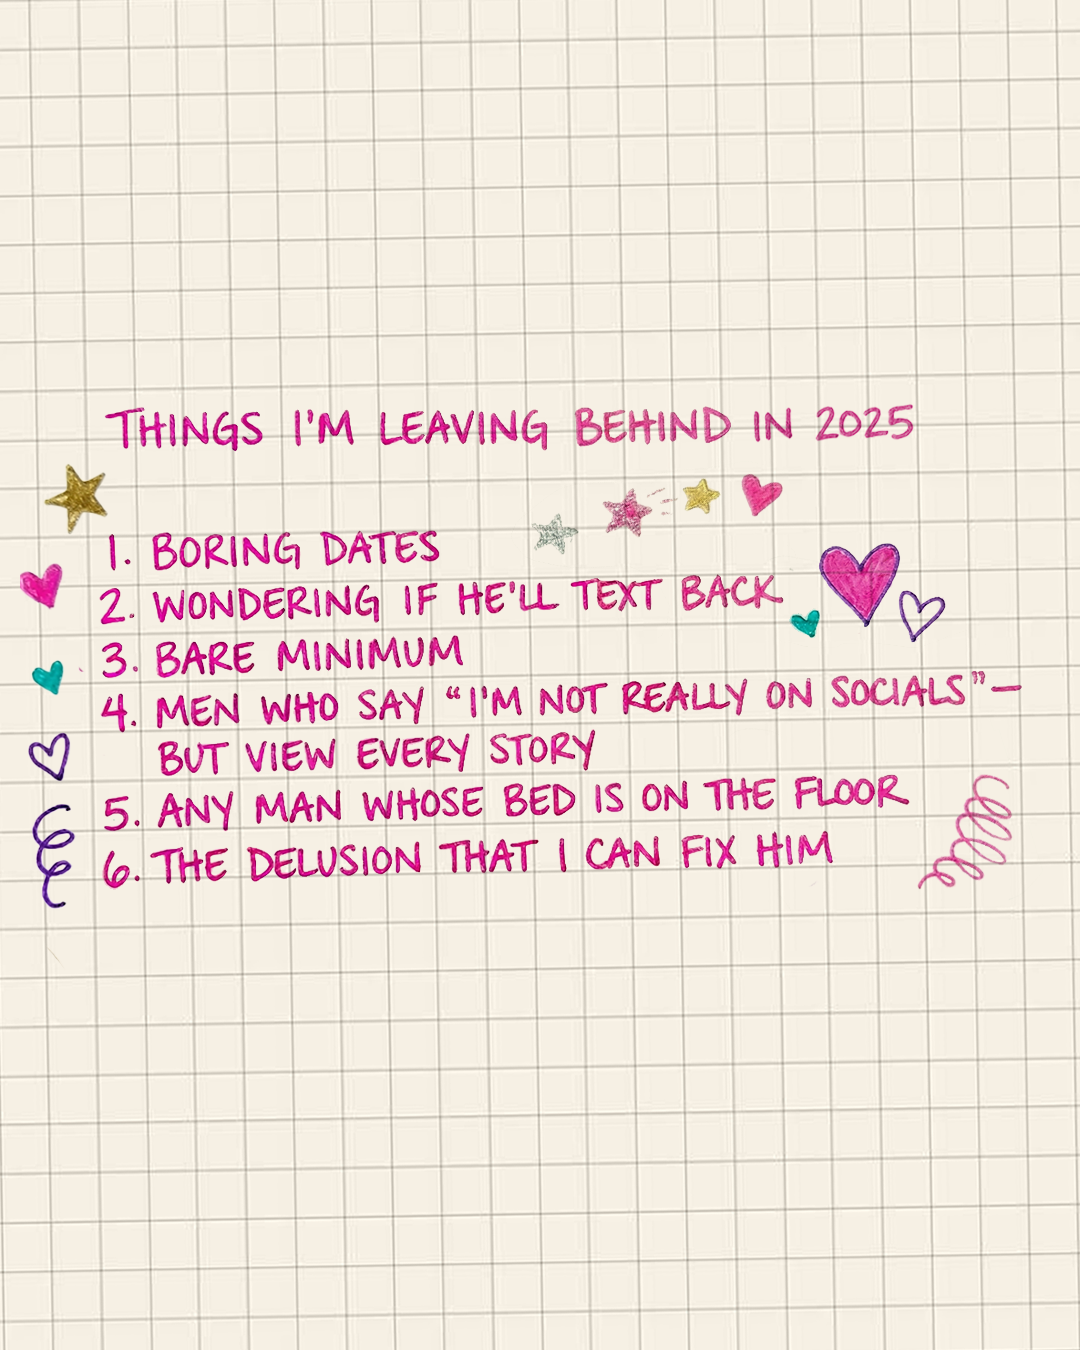 THINGS I'M LEAVING BEHIND IN 2025
1. BORING DATES
2. WONDERING IF HE'LL TEXT BACK
3. BARE MINIMUM
4. MEN WHO SAY “I'M NOT REALLY ON SOCIALS”—
BUT VIEW EVERY STORY
5. ANY MAN WHOSE BED IS ON THE FLOOR
6. THE DELUSION THAT I CAN FIX HIM